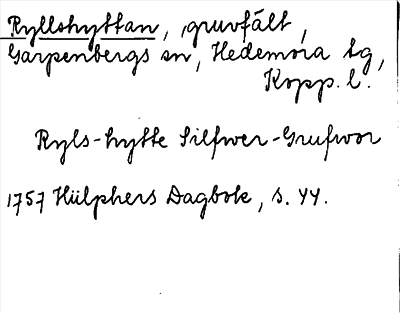 Ryllshyttan, gruvfält,
Garpenbergs sn, Hedemora tg,
Kopp. l.
Ryls-hytte Silfwer-Grufwor
1757 Hülphers Dagbok, s. 44.